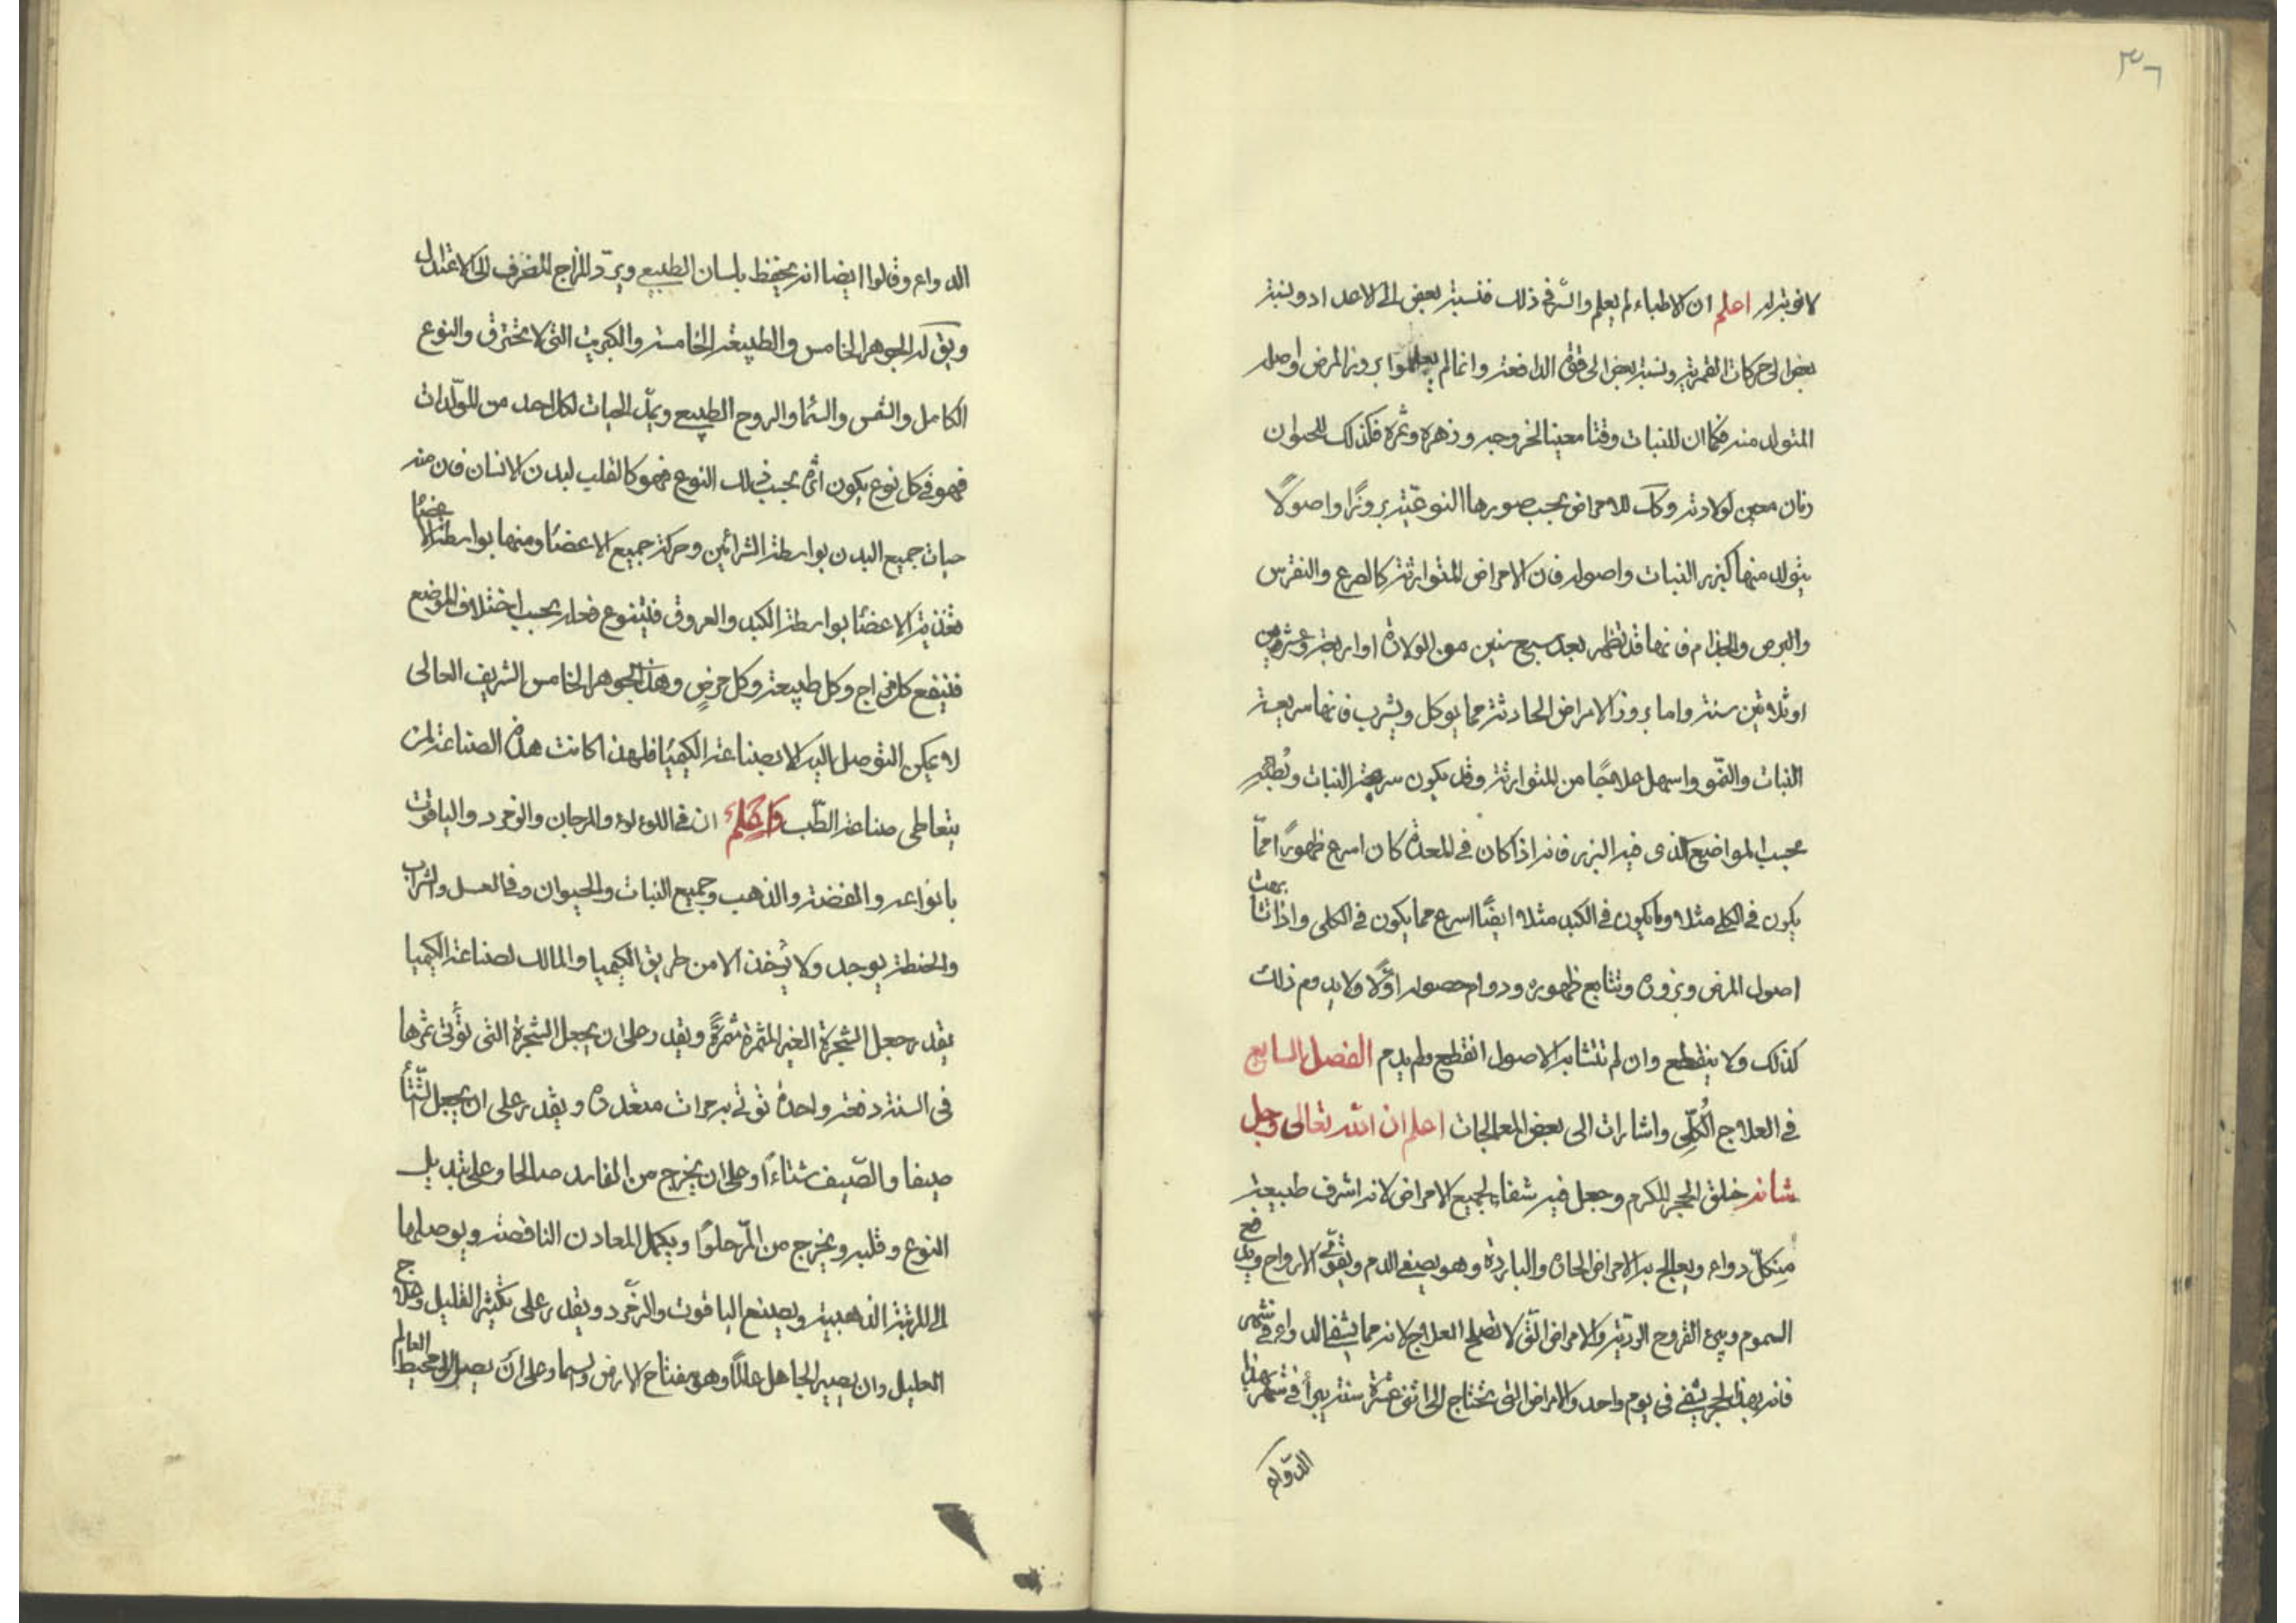 ٣٦
لا نوبة له اعلم ان الاطباء لم يعلموا السّر فى ذلك فنسبة بعض الى الاعداد ونسبة
بعض الى حركات القمرية ونسبة بعض الى قوة الدافعة وانما لم يعلموا بروز المرض واصله
المتولد منه فكما ان للنبات وقتا معينا لخروجه وزهره وثمره فكذلك للحيوان
زمان معين لولادته وكك للامراض بحسب صورها النوعيّة بروزًا واصولًا
يتولد منها كبزر النبات واصوله فان الامراض المتوارثة كالصرع والنقرس
والبرص والجذام فانها قد تظهر بعد سبع سنين من الولادة او اربعة وعشرين
او ثلاثين سنة واما بروز الامراض الحادثة مما يوكل ويشرب فانها سريعة
النبات والنمّو واسهل علاجًا من المتوارثة وقد يكون سرعة النبات
بحسب المواضيع الذى فيه البزر فانه اذا كان فى المعدة كان اسرع ظهورًا ممّا
يكون فى الكلى مثلا وما يكون فى الكبد مثلا ايضًا اسرع مما يكون فى الكلى واذا تشابهت
اصول المرض وبزوره وتتابع ظهوره ودوام حصوله اوّلًا ولا يدوم ذلك
كذلك ولا ينقطع وان لم تتشابه الاصول انقطع ولم يدم الفصل السابع
فى العلاج الكُلّى واشارات الى بعض المعالجات اعلم ان الله تعالى وجل
شانه خلق الحجر المكرم وجعل فيه شفاء لجميع الامراض لانه اشرف طبيعة
من كلّ دواء ويعالج به الامراض الحارة والباردة وهو يصفى الدم ويقوّى الارواح ويدفع
السموم ويبرئ القروح الرديّة والامراض الّتى لا تصلح العلاج لانه مما يشفى الدواء فى شهر
فانه بهذا الحجر يشفى فى يوم واحد والامراض التى تحتاج الى اثنى عشرة سنة يبرأ فى شهر
الدّواء
الدواء وقالوا ايضا انه يحفظ بلسان الطبيعى ويردّ المزاج المنحرف الى الاعتدال
ويق له الجوهر الخامس والطبيعة الخامسة والكبريت التى لا تحترق والنوع
الكامل والشمس والسما والروح الطبيعى ويمدّ الحيات لكل احد من المولّدات
فهو فى كل نوع يكون اثره بحسب ذلك النوع فهو كالقلب لبدن الانسان فان منه
حيات جميع البدن بواسطة الشرائين وحركة جميع الاعضا ومنها بواسطة الاعضا
تغذية الاعضا بواسطة الكبد والعروق فيتنوع فعله بحسب اختلاف المواضع
فينفع كل مزاج وكل طبيعة وكل مرضٍ وهذا الجوهر الخامس الشريف العالى
لا يمكن التوصل اليه الا بصناعة الكيميا فلهذا كانت هذه الصناعة لمن
يتعاطى صناعة الطّب واعلم ان فى اللوءلوء والمرجان والزمرد والياقوت
بانواعه والفضة والذهب وجميع النبات والحيوان وفى العسل والشراب
والحنطة يوجد ولا يُؤخذ الا من طريق الكيميا والمالك لصناعة الكيميا
يقدر جعل الشجرة الغير المثمرة مثمرةً ويقدر على ان يجعل الشجرة التى تؤتى ثمرها
فى السنة دفعة واحدة توتى به مرات متعددة ويقدر على ان يجعل الشّتأ
صيفا والصّيف شتاءًا وعلى ان يخرج من الفاسد صالحا وعلى تبديل
النوع وقلبه ويخرج من المرّ حلوًا ويكمل المعادن الناقصة ويوصلها
الى المرتبة الذهبية ويصنع الياقوت والزمّرد ويقدر على تكثير القليل وعلاج
العليل وان يصير الجاهل عالمًا وهو مفتاح الارض والسما وعلى ان يصل الى محيط العالم